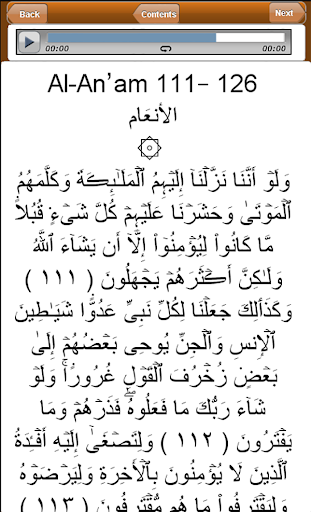 Back Contents Next
00:00 00:00
Al-An'am 111- 126
الأنعَام
۞
وَلَوۡ أَنَّنَا نَزَّلۡنَآ إِلَيۡهِمُ ٱلۡمَلَٰٓئِكَةَ وَكَلَّمَهُمُ
ٱلۡمَوۡتَىٰ وَحَشَرۡنَا عَلَيۡهِمۡ كُلَّ شَىۡءٍ۬ قُبُلاً۬
مَّا كَانُواْ لِيُؤۡمِنُوٓاْ إِلَّآ أَن يَشَآءَ ٱللَّهُ
وَلَـٰكِنَّ أَڪۡثَرَهُمۡ يَجۡهَلُونَ ( ١١١ )
وَكَذَٲلِكَ جَعَلۡنَا لِكُلِّ نَبِىٍّ عَدُوًّ۬ا شَيَـٰطِينَ
ٱلۡإِنسِ وَٱلۡجِنِّ يُوحِى بَعۡضُهُمۡ إِلَىٰ
بَعۡضٍ۬ زُخۡرُفَ ٱلۡقَوۡلِ غُرُورً۬ا‌ۚ وَلَوۡ
شَآءَ رَبُّكَ مَا فَعَلُوهُ‌ۖ فَذَرۡهُمۡ وَمَا
يَفۡتَرُونَ ( ١١٢ ) وَلِتَصۡغَىٰٓ إِلَيۡهِ أَفۡـِٔدَةُ
ٱلَّذِينَ لَا يُؤۡمِنُونَ بِٱلۡأَخِرَةِ وَلِيَرۡضَوۡهُ
وَلِيَقۡتَرِفُواْ مَا هُم مُّقۡتَرِفُونَ ( ١١٣ )